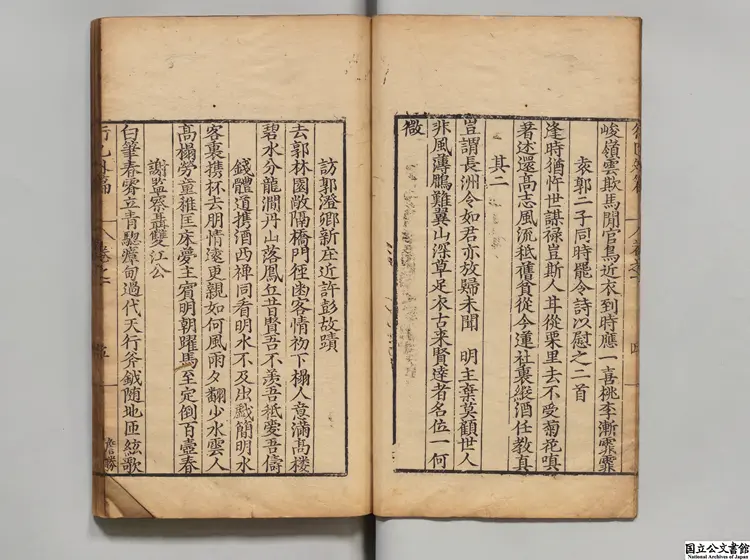 峻嶺雲欺馬閒官鳥近衣到時應一喜桃李漸霏霏
袁郭二子同時罷令詩以慰之二首
逢時猶忤世謀祿豈斯人甘從栗里去不受菊花嗔
著述還高志風流秪舊貧從今蓮社裏縱酒任教真
其二
豈謂長洲令如君亦放歸未聞 明主棄莫顧世人
非風薄鵬難翼山深草足衣古來賢達者名位一何
微
訪郭澄卿新庄近許彭故蹟
去郭林園敞隔橋門徑幽客情初下榻人意滿高樓
碧水分龍澗丹山落鳳丘昔賢吾不羨吾秪愛吾儔
錢體道携酒西禪同看明水不及出戲簡明水
客裏携杯去朋情遠更親如何風雨夕翻少水雲人
高榻勞童穉匡床夢主賓明朝躍馬至定倒百壺春
謝監察聶雙江公
白筆春霽立青驄瘴甸過代天行斧鉞隨地匝絃歌
國立公文書館
National Archives of Japan